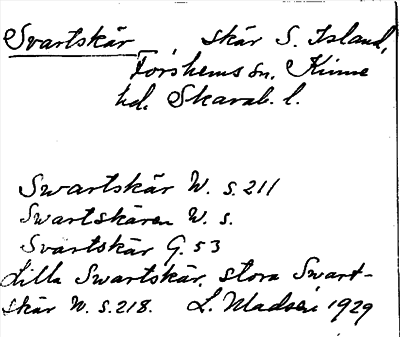 Svartskär skär S. Island,
Forshems sn. Kinne
hd. Skarab. l.
Swartskär W. s. 211
Swartskären W. s.
Svartskär G. 53
Lilla Swartskär, stora Swart-
skär W. s. 218. L. Madsén 1929